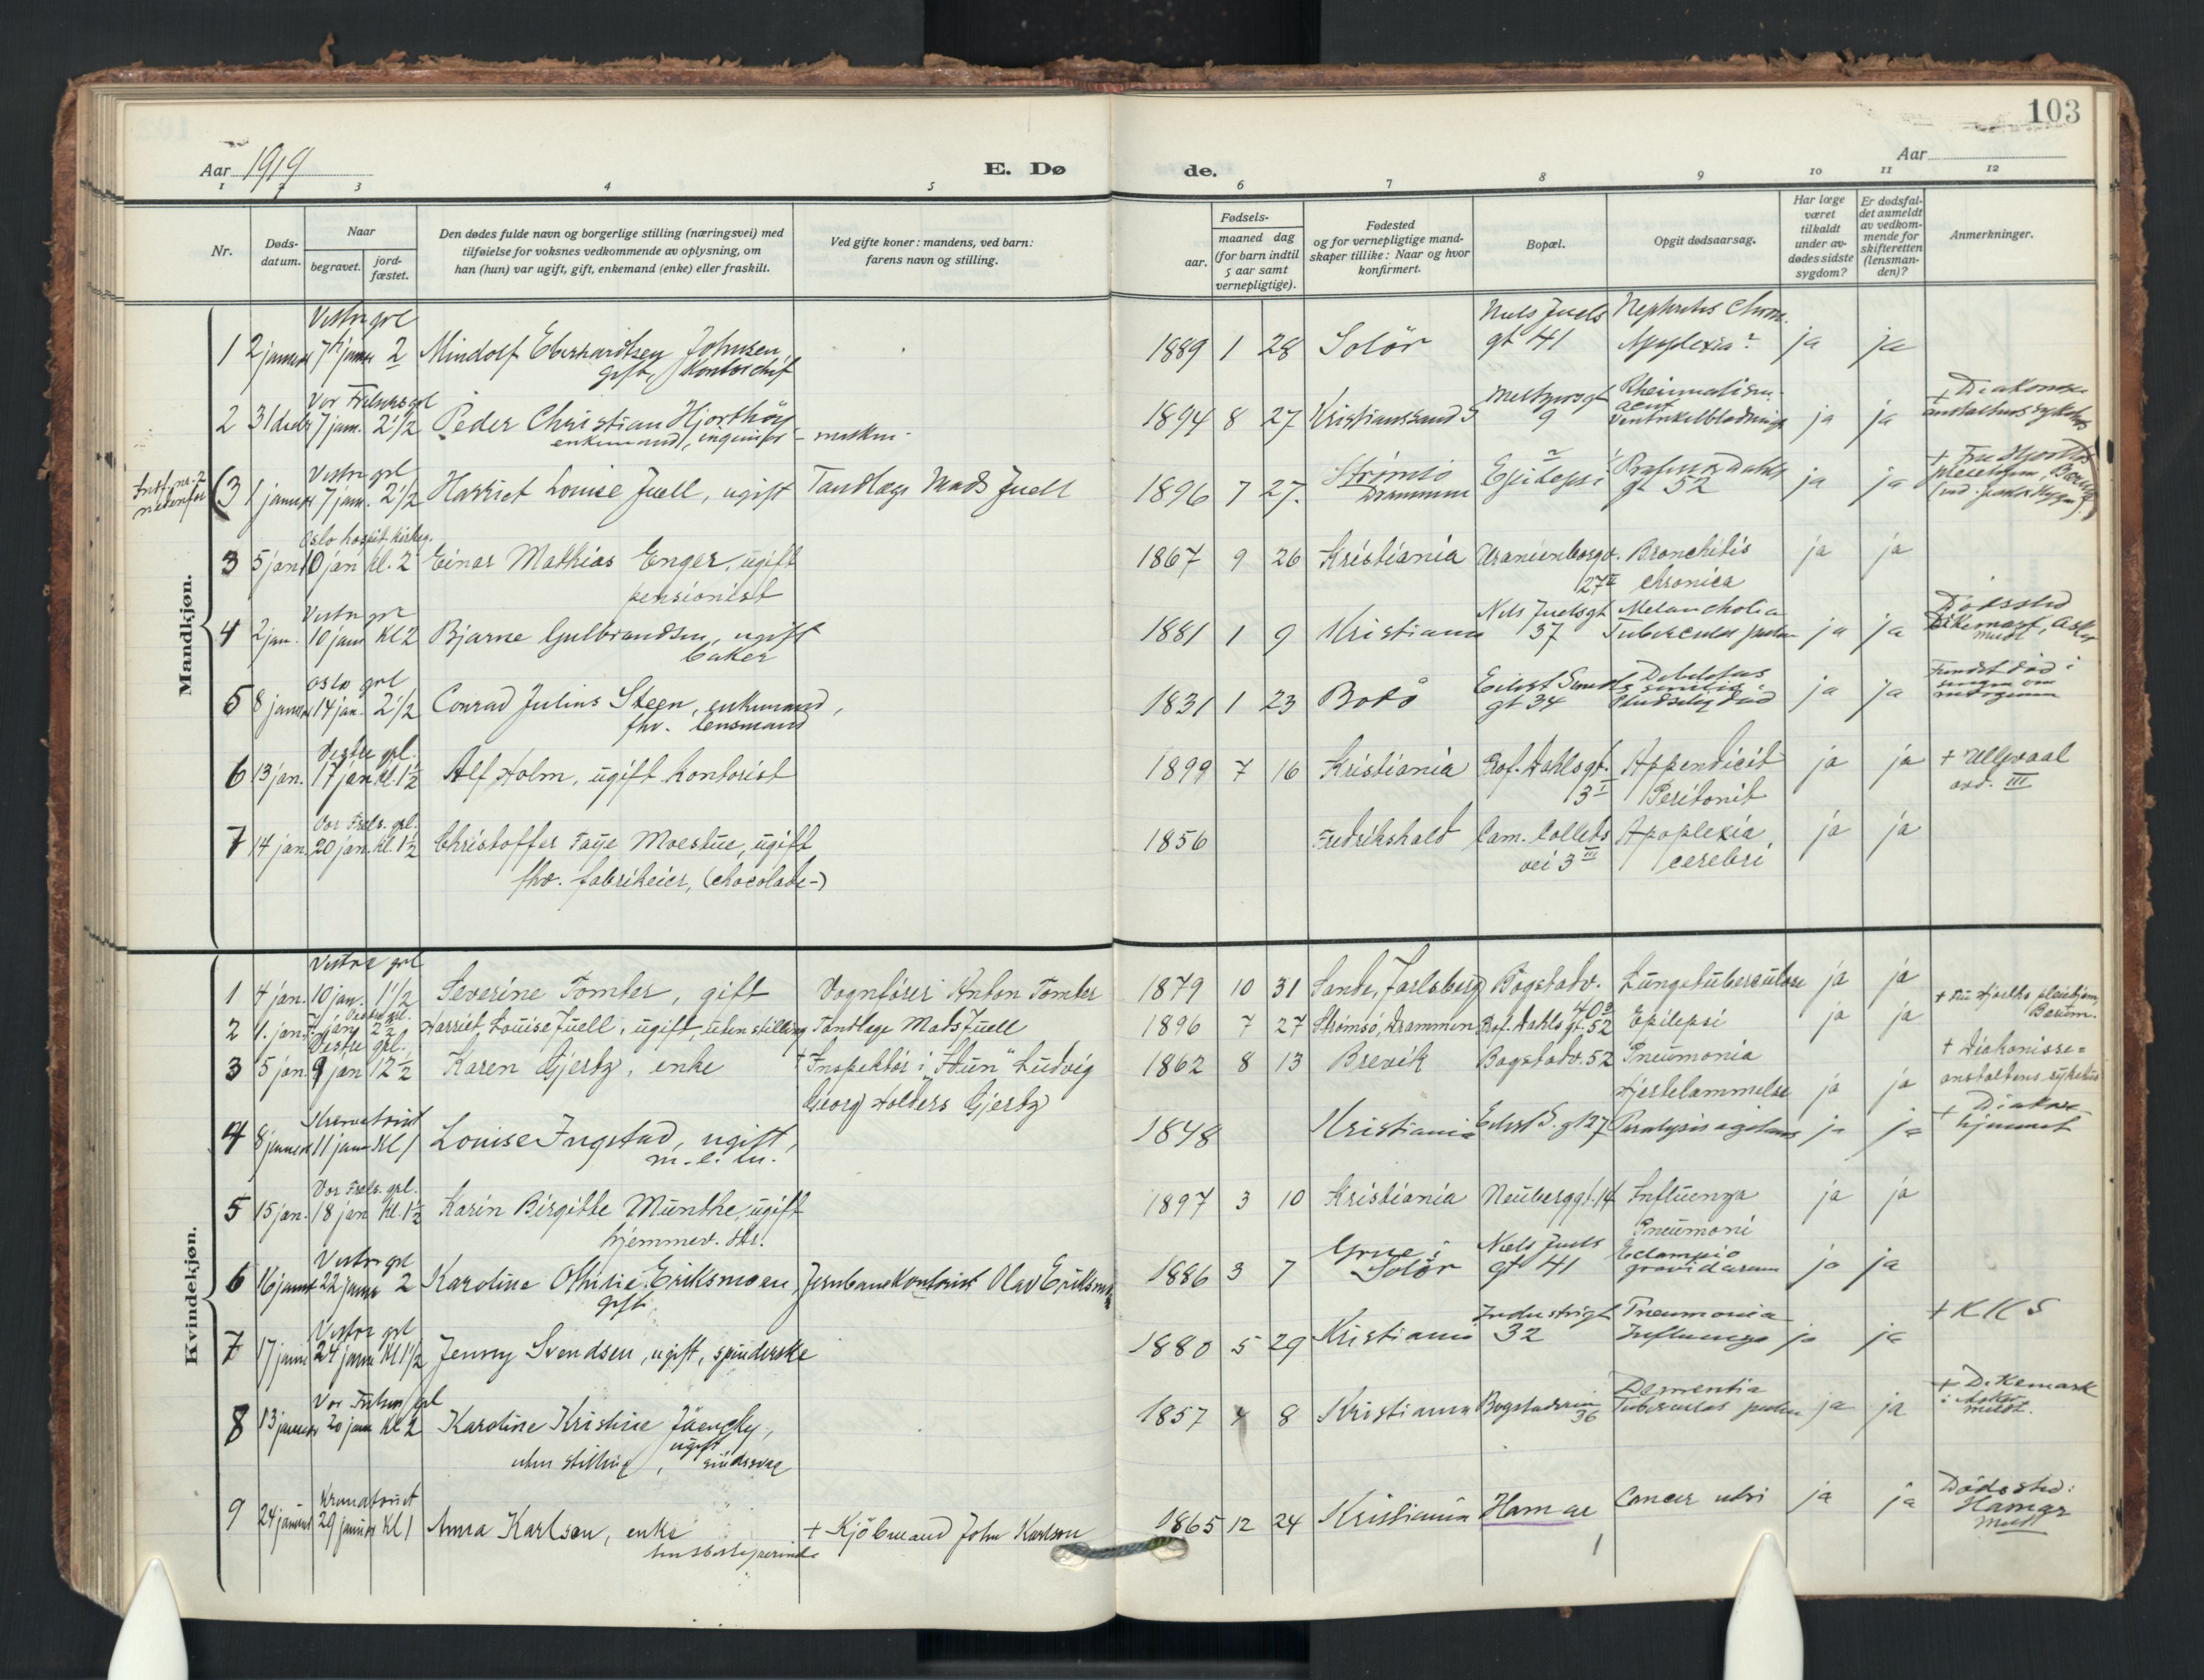 103
Aar 1919
E. Dø
de.
Aar
1 2 3 4 5 6 7 8 9 10 11 12
Nr.
Døds-
datum.
Naar
begravet.
jord-
fæstet.
Den dødes fulde navn og borgerlige stilling (næringsvei) med
tilføielse for voksnes vedkommende av oplysning, om
han (hun) var ugift, gift, enkemand (enke) eller fraskilt.
Ved gifte koner: mandens, ved barn:
farens navn og stilling.
Fødsels-
aar.
maaned dag
(for barn indtil
5 aar samt
vernepligtige).
Fødested
og for vernepligtige mand-
skaper tillike: Naar og hvor
konfirmert.
Bopæl.
Opgit dødsaarsag.
Har læge
været
tilkaldt
under av-
dødes sidste
sygdom?
Er dødsfal-
det anmeldt
av vedkom-
mende for
skifteretten
(lensman-
den)?
Anmerkninger.
Mandkjøn.
Vestre grl Niels Juels Nephritis Chron.
1 2 januar 7 januar 2 Mindolf Eberhardtsen Johnsen 1889 1 28 Solör gt 41 Apoplexia? ja ja
gift, Kontorchef
Vor Frelsers grl Rheumatism. + Diakonisse
2 31 decbr 7 jan. 2 1/2 Peder Christian Hjorthöy 1894 8 27 Kristianssand S 9 acut Ventrikelblødning ja ja anstaltens sykehus
enkemand, ingeniør - maskin-
Vestre grl
nedenfor (3 1 januar 7 jan. 2 1/2 Harriet Louise Juell, ugift Tandlæge Mads Juell 1896 7 27. Strömsö Drammen Epilepsi Professor Dahls gt 52 ja ja
Oslo hospit. kirkeg.
3 5 jan 10 jan kl. 2 Einar Mathias Enger, ugift 1867 9 26 Kristiania Uranienborgv. Bronchitis ja ja
pensionist 27 II chronica
Vestre grl Nils Juelsgt Melancholia Dödssted
4 2 jan. 10 jan Kl 2 Bjarne Gulbrandsen, ugift 1881 1 9 Kristiania 37 Tuberculos pulm ja ja Dikemark, Asker
baker meldt
Oslo grl Debilitas Fundet död i
5 8 januar 14 jan. 2 1/2 Conrad Julius Steen, enkemand, 1831 1 23 Bodö Eilert Sundts gt 34 senilis Pludselig död ja ja sengen om morgenen
fhv. lensmand
Vestre grl.
6 13 jan. 17 jan kl. 1 1/2 Alf Holm, ugift kontorist 1899 7 16 Kristiania Prof. Dahlsgt. Appendicit ja ja + Ullevaal
3 I Peritonit avd. III
Vor Frels. grl.
7 14 jan. 20 jan. kl. 1 1/2 Christoffer Faye Moestue, ugift 1856 Fredrikshald Cam. Colletts Apoplexia ja ja
fhv. fabrikeier, (chocolade-) vei 3 III cerebri
Kvindekjøn.
Vestre grl
1 4 jan. 10 jan. 1 1/2 Severine Tomter, gift Vognfører Anton Tomter 1879 10 31 Sande, Jarlsberg Bogstadv. 40 Lungetuberculose ja ja
Vestre grl. + Fru Hjorths pleiehjem,
2 1. jan. 7 jan 2 1/2 Harriet Louise Juell, ugift, uten stilling Tandlæge Mads Juell 1896 7 27 Strömsö, Drammen Prof. Dahls gt. 52 Epilepsi ja ja Bærum.
Vestre grl.
3 5 jan. 9 jan 12 1/2 Karen Gjertz, enke + Inspektør i "Idun" Ludvig 1862 8 13 Brevik Bogstadv. 52 Pneumonia + Diakonisse-
Georg Holders Gjertz Hjertelammelse ja ja anstaltens sykehus
Krematoriet
4 8 januar 11 jan Kl 1 Louise Ingstad, ugift, 1848 Kristiania Eilert S. gt 27 Paralysis agitans ja ja + Diakon-
hjemmet
Vor Frels. grl.
5 15 jan. 18 jan kl. 1 1/2 Karin Birgitte Munthe, ugift 1897 3 10 Kristiania Neuberggt. 14 Influenza ja ja
hjemmev. dtr. Pneumoni
Vestre grl Niels Juels Eclampsia
6 16 januar 22 januar 2 Karoline Othilie Eriksmoen, Jernbanekontorist Olav Eriksmoen 1886 3 7 Grue i Solör gt 41 gravidarum ja ja
gift
Vestre grl Industrigt Pneumonia + KKS
7 17 januar 24 januar Kl 1 1/2 Jenny Svendsen, ugift, spinderske 1880 5 29 Kristiania 32 Influenza ja ja
Vor Frelsers grl Dementia + Dikemark
8 13 januar 20 jan Kl 2 Karoline Kristine 1857 4 8 Kristiania Bogstadveien 36 Tuberculos pulm ja ja i Asker
uten stilling, ugift sindssyg meldt.
Krematoriet Dödssted:
9 24 januar 29 januar Kl 1 Anna Karlsen, enke + Kjöbmand John Karlsen 1865 12 24 Kristiania Hamar Cancer uteri ja ja Hamar
husbestyrerinde meldt